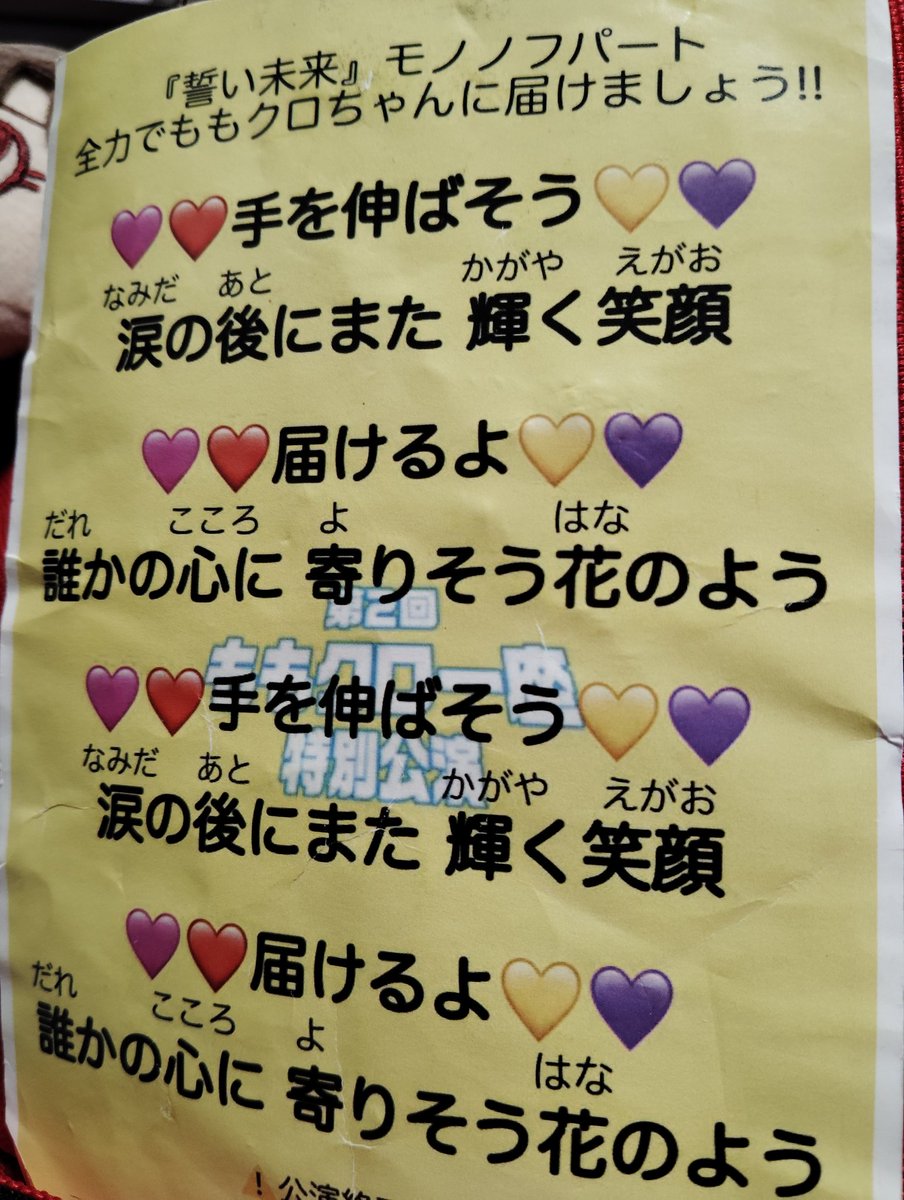 『誓い未来』モノノフパート
全力でももクロちゃんに届けましょう!!
💜❤️手を伸ばそう💛💜
なみだ あと かがや えがお
涙の後にまた 輝く笑顔
💜❤️届けるよ💛💜
だれ こころ よ はな
誰かの心に 寄りそう花のよう
第2回
ももクロ一座
特別公演
💜❤️手を伸ばそう💛💜
なみだ あと かがや えがお
涙の後にまた 輝く笑顔
💜❤️届けるよ💛💜
だれ こころ よ はな
誰かの心に 寄りそう花のよう
! 公演